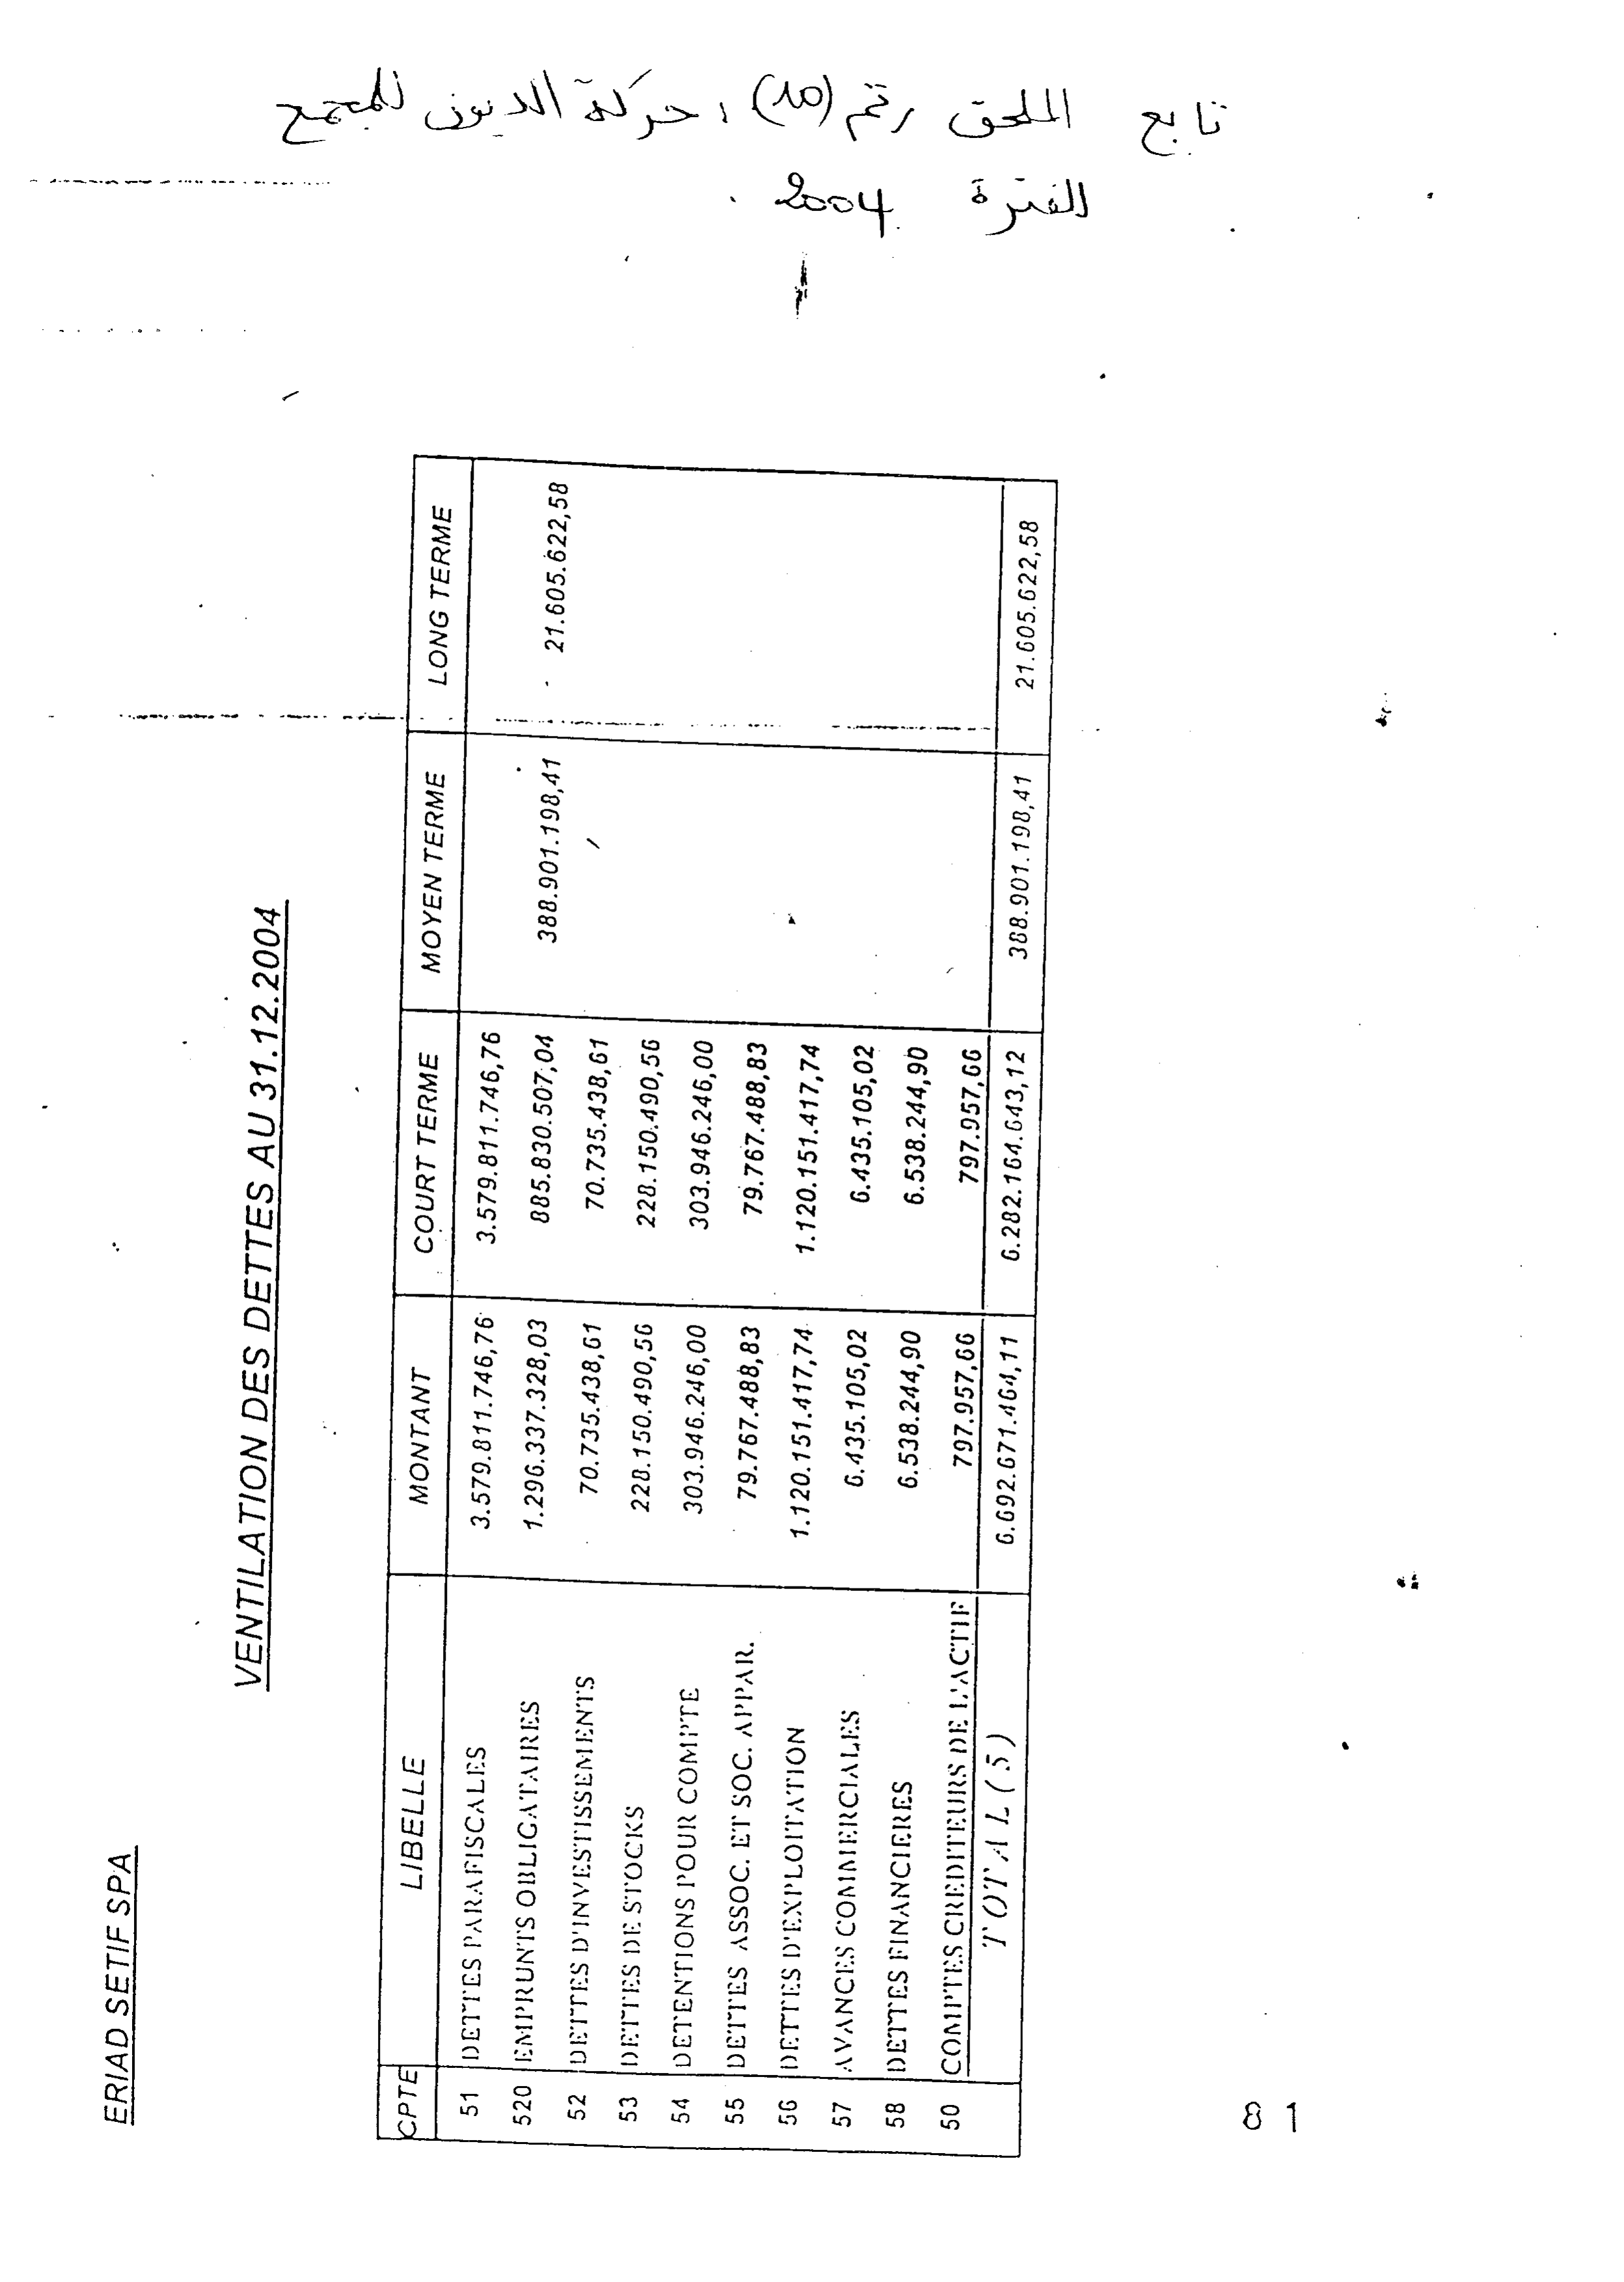 تابع الملحق رقم (10) : حركة الديون للمجمع
للفترة 2004 .
ERIAD SETIF SPA
VENTILATION DES DETTES AU 31.12.2004
CPTE LIBELLE MONTANT COURT TERME MOYEN TERME LONG TERME
51 DETTES PARAFISCALES 3.579.811.746,76 3.579.811.746,76
520 EMPRUNTS OBLIGATAIRES 1.296.337.328,03 885.830.507,04 388.901.198,41 21.605.622,58
52 DETTES D'INVESTISSEMENTS 70.735.438,61 70.735.438,61
53 DETTES DE STOCKS 228.150.490,56 228.150.490,56
54 DETENTIONS POUR COMPTE 303.946.246,00 303.946.246,00
55 DETTES ASSOC. ET SOC. APPAR. 79.767.488,83 79.767.488,83
56 DETTES D'EXPLOITATION 1.120.151.417,74 1.120.151.417,74
57 AVANCES COMMERCIALES 6.435.105,02 6.435.105,02
58 DETTES FINANCIERES 6.538.244,90 6.538.244,90
50 COMPTES CREDITEURS DE L'ACTIF 797.957,66 797.957,66
TOTAL (5) 6.692.671.464,11 6.282.164.643,12 388.901.198,41 21.605.622,58
81